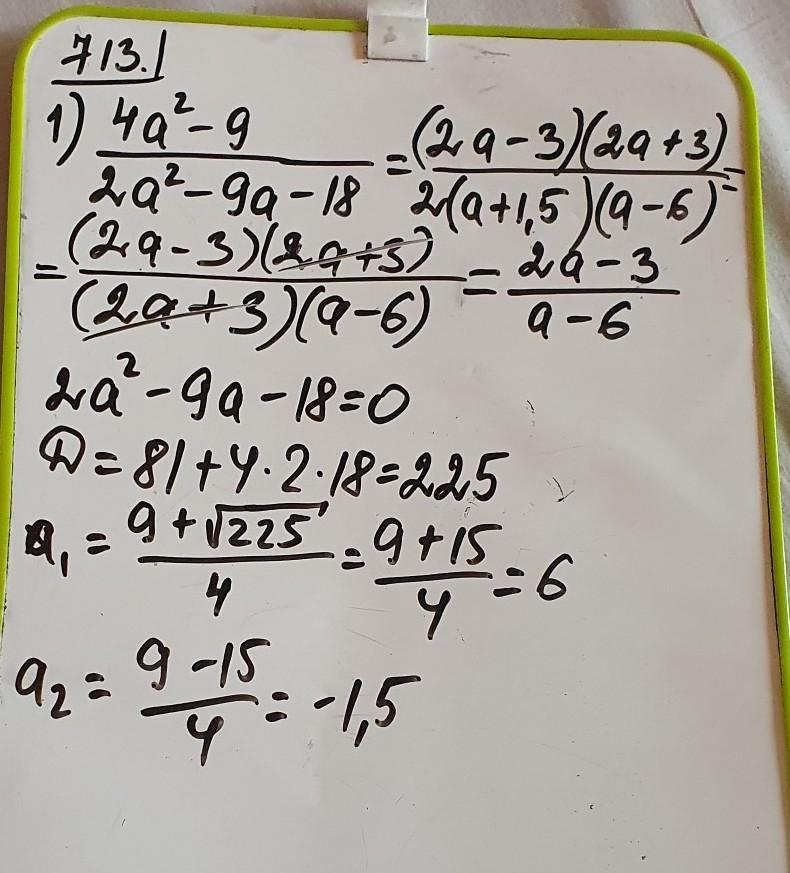 713.
1) (4a² - 9)/(2a² - 9a - 18) = ((2a - 3)(2a + 3))/(2(a + 1,5)(a - 6)) =
= ((2a - 3)(2a + 3))/((2a + 3)(a - 6)) = (2a - 3)/(a - 6)
2a² - 9a - 18 = 0
D = 81 + 4 · 2 · 18 = 225
a₁ = (9 + √225)/4 = (9 + 15)/4 = 6
a₂ = (9 - 15)/4 = -1,5